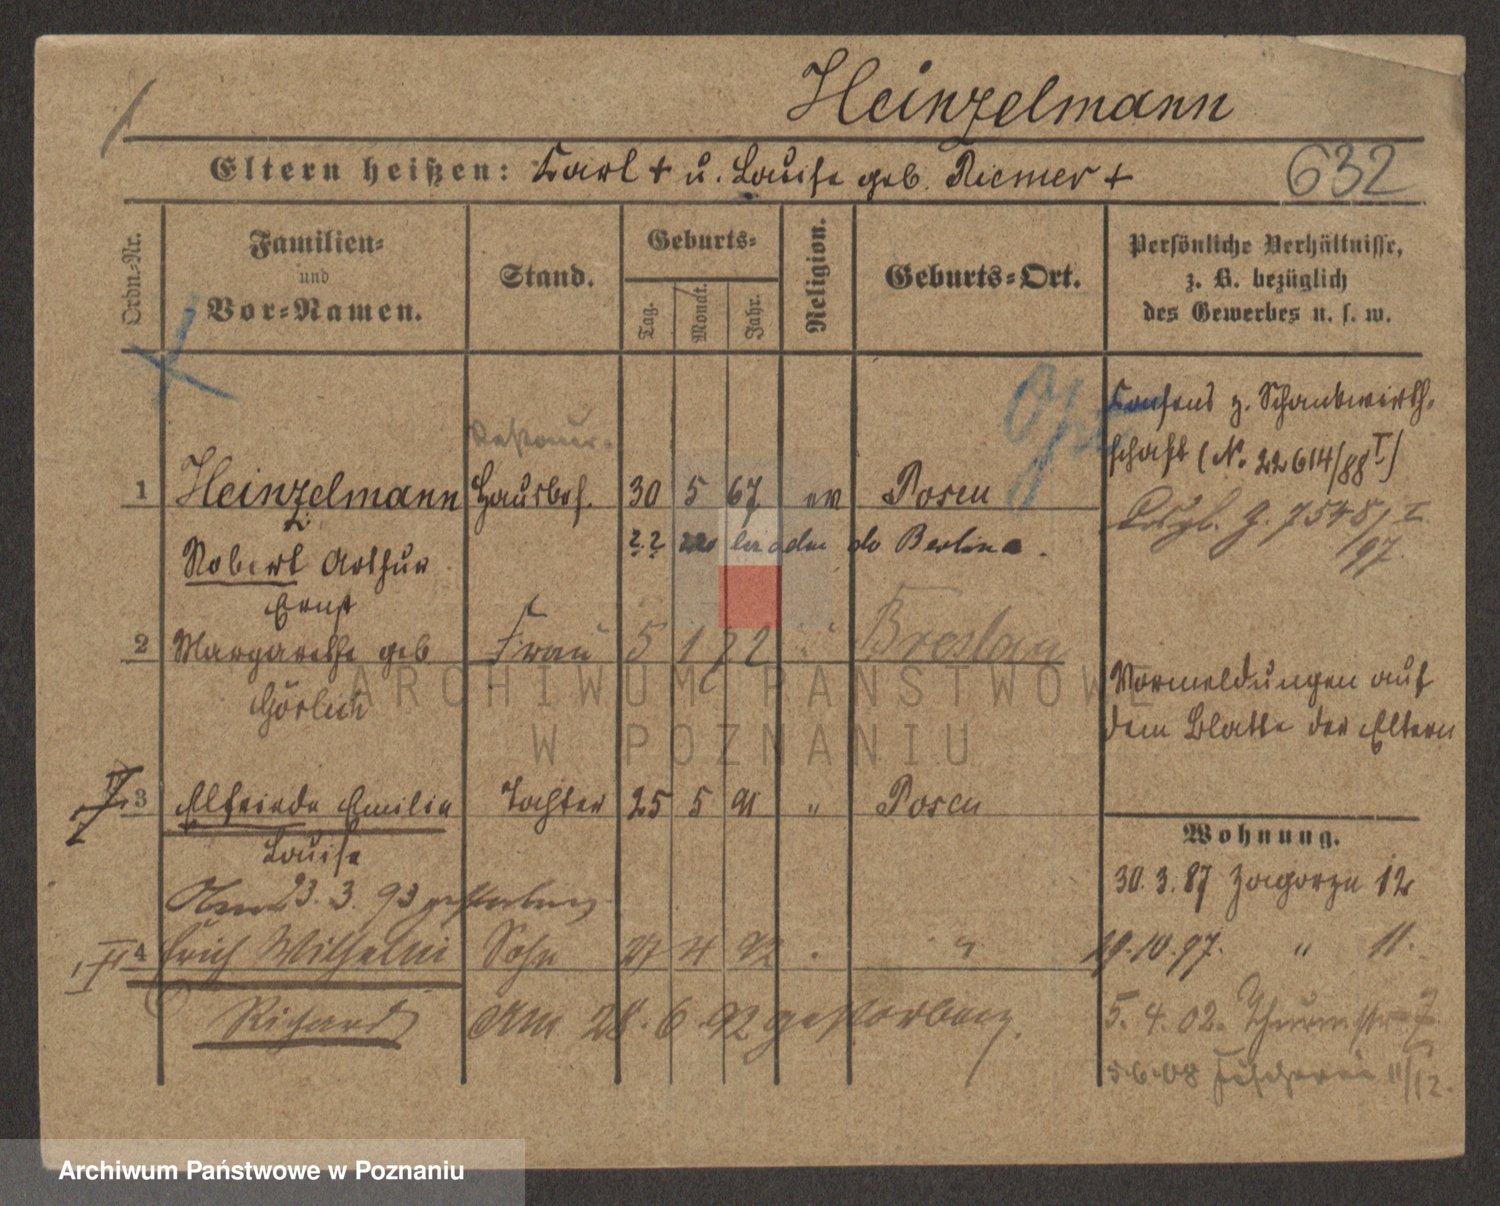 Heinzelmann
Eltern heißen: Karl + u. Louise geb. Riemer +
632
Ordn.-Nr.
Familien- und Vor-Namen.
Stand.
Geburts-
Tag.
Monat.
Jahr.
Religion.
Geburts-Ort.
Persönliche Verhältnisse,
z. B. bezüglich
des Gewerbes u. s. w.
Konsens z. Schankwirth-
schaft (N. 22614/88 I)
Restaur.
1 Heinzelmann Hausbes. 30 5 67 ev Posen
J. 7548/I
97.
Robert Arthur
Ernst
2 Margarethe geb Frau 5 1 72 " Breslau
Vormeldungen auf
dem Blatte der Eltern
3 Elfriede Emilie Tochter 25 5 91 " Posen
Louise
Am 23. 3. 93 gestorben
4 Erich Wilhelm Sohn 27 4 92 "
Richard Am 28. 6. 92 gestorben.
Wohnung.
30. 3. 87 Zagorze 12
29. 10. 97. " 11.
5. 4. 02. Thurmstr 7
5 6 08 Fischerei 11/12.
ARCHIWUM PAŃSTWOWE
W POZNANIU
Archiwum Państwowe w Poznaniu